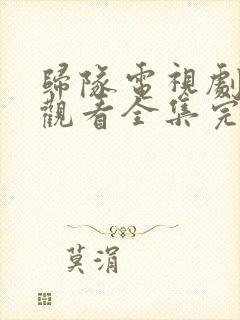 歸隊電視劇
觀看全集完
莫涓